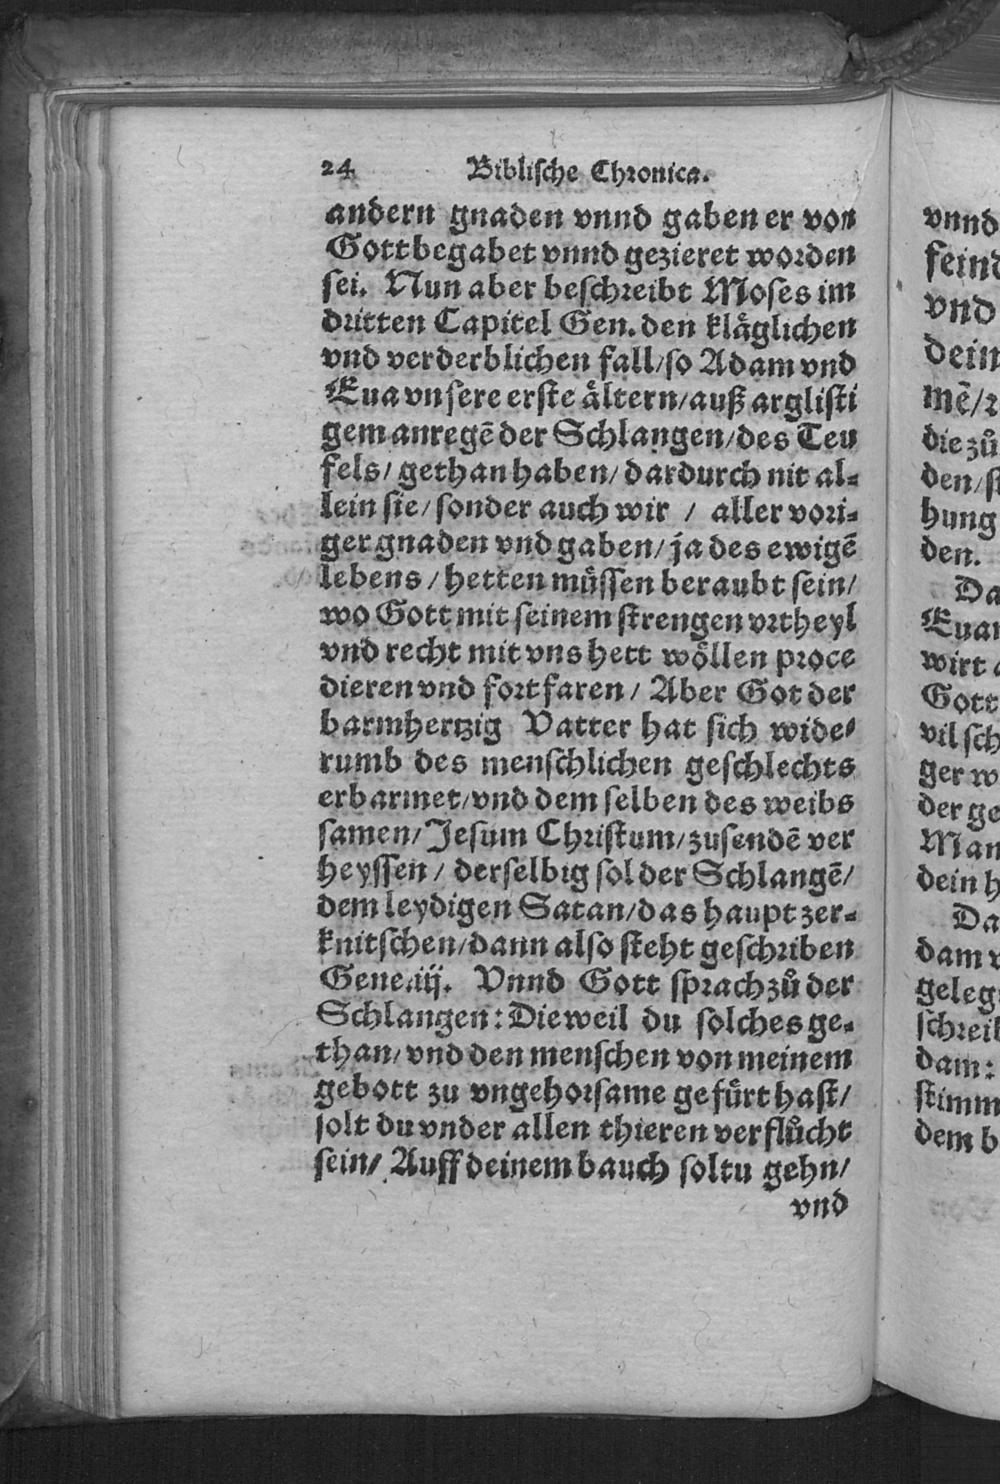 24 Biblische Chronica.
andern gnaden vnnd gaben er von
Gott begabet vnnd gezieret worden
sei. Nun aber beschreibt Moses im
dritten Capitel Gen. den kläglichen
vnd verderblichen fall/so Adam vnd
Eua vnsere erste ältern/auß arglisti
gem anregē der Schlangen/des Teu
fels/ gethan haben/ dardurch nit al-
lein sie/ sonder auch wir / aller vori-
ger gnaden vnd gaben/ ja des ewigē
lebens / hetten müssen beraubt sein/
wo Gott mit seinem strengen vrtheyl
vnd recht mit vns hett wöllen proce
dieren vnd fortfaren / Aber Got der
barmhertzig Vatter hat sich wide-
rumb des menschlichen geschlechts
erbarmet/vnd dem selben des weibs
samen/Jesum Christum/zusendē ver
heyssen / derselbig sol der Schlangē/
dem leydigen Satan/das haupt zer-
knitschen/dann also steht geschriben
Gene.iij. Vnnd Gott sprach zů der
Schlangen: Dieweil du solches ge-
than/ vnd den menschen von meinem
gebott zu vngehorsame gefürt hast/
solt du vnder allen thieren verflůcht
sein/ Auff deinem bauch soltu gehn/
vnd
vnnd
feind
vnd
dein
mē/
die zů
den/
hung
den.
Da
Eua
wirt
Gott
vil sch
ger w
der ge
Man
dein h
Da
dam v
geleg
schreib
dam:
stimm
dem b